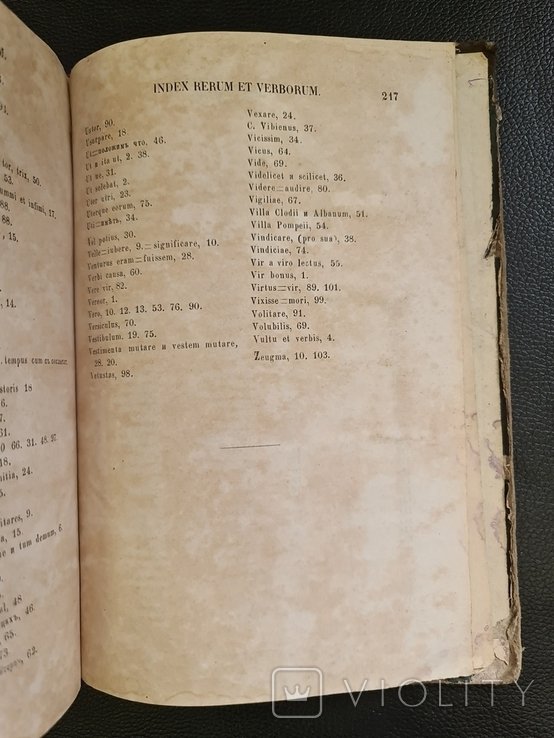 M.
6.
94.
tor, trix, 50.
53.
ummi et infimi, 17.
88.
88.
, 15.
14.
tempus cum
storis 18
6.
7.
61.
0 66. 31. 48. 97.
18.
nitia, 24.
5.
litares, 9.
a, 15.
ne и tum demum, 6.
ul, 48
46.
, 65.
73.
62.
INDEX RERUM ET VERBORUM.
217
Ustor, 90.
Usurpare, 18
Ut=положимъ что. 46.
Ut и ita ut, 2. 38.
Ut ne, 31.
Ut solebat, 2.
Utor viri, 23.
Uterque eorum, 75.
Uti=имѣть, 34.
Vel potius, 30.
Velle=iubere, 9.=significare, 10.
Venturus eram=fuissem, 28.
Verbi causa, 60.
Vere vir, 82.
Vereor, 1.
Vero, 10. 12. 13. 53. 76. 90.
Versiculus, 70.
Vestibulum. 19. 75.
Vestimenta mutare и vestem mutare,
28. 20.
Vetustas, 98.
Vexare, 24.
C. Vibienus, 37.
Vicissim, 34.
Vicus, 64.
Vide, 69.
Videlicet и scilicet, 36.
Videre=audire, 80.
Vigiliae, 67.
Villa Clodii и Albanum, 51.
Villa Pompeii, 54.
Vindicare, (pro sua), 38.
Vindiciae, 74.
Vir a viro lectus, 55.
Vir bonus, 1.
Virtus=vir, 89. 101.
Vixisse=mori, 99.
Volitare, 91.
Volubilis, 69.
Vultu et verbis, 4.
Zeugma, 10. 103.
VIOLITY